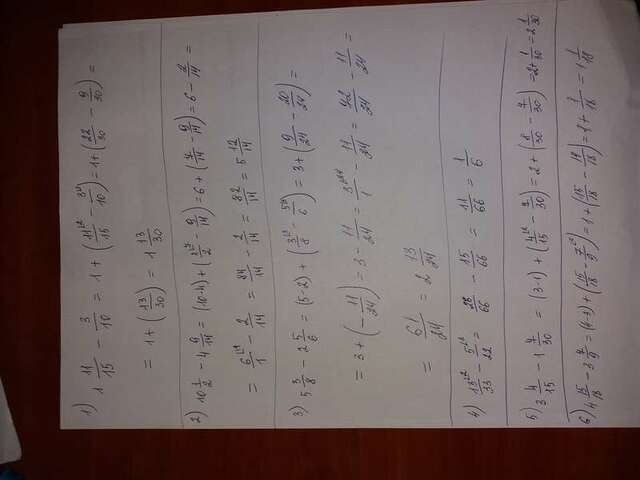 1) 1 11/15 - 3/10 = 1 + (11\2/15 - 3\3/10) = 1 + (22/30 - 9/30) =
= 1 + (13/30) = 1 13/30
2) 10 1/2 - 4 9/14 = (10-4) + (1\7/2 - 9/14) = 6 + (7/14 - 9/14) = 6 - 2/14 =
= 6\14/1 - 2/14 = 84/14 - 2/14 = 82/14 = 5 12/14
3) 5 3/8 - 2 5/6 = (5-2) + (3\3/8 - 5\4/6) = 3 + (9/24 - 20/24) =
= 3 + (-11/24) = 3 - 11/24 = 3\24/1 - 11/24 = 72/24 - 11/24 =
= 61/24 = 2 13/24
4) 13\2/33 - 5\3/22 = 26/66 - 15/66 = 11/66 = 1/6
5) 3 4/15 - 1 7/30 = (3-1) + (4\2/15 - 7/30) = 2 + (8/30 - 7/30) = 2 + 1/30 = 2 1/30
6) 4 15/18 - 3 7/9 = (4-3) + (15/18 - 7\2/9) = 1 + (15/18 - 14/18) = 1 + 1/18 = 1 1/18